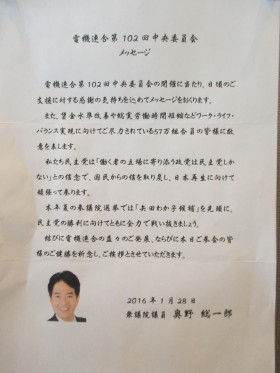 電機連合第102回中央委員会
メッセージ
電機連合第102回中央委員会の開催に当たり、日頃のご
支援に対する感謝の気持ちを込めてメッセージをおくります。
また、賃金水準改善や総実労働時間短縮などワーク・ライフ・
バランス実現に向けてご尽力されている57万組合員の皆様に敬
意を表します。
私たち民主党は「働く者の立場に寄り添う政党は民主党しか
ない」との信念で、国民からの信を取り戻し、日本再生に向けて
頑張って参ります。
本年夏の参議院選挙では「矢田わか子候補」を先頭に、
民主党の勝利に向けてともに全力で戦い抜きましょう。
結びに電機連合の益々のご発展、ならびに本日ご参会の皆
様のご健勝を祈念し、ご挨拶とさせていただきます。
2016年1月28日
衆議院議員 奥野 総一郎